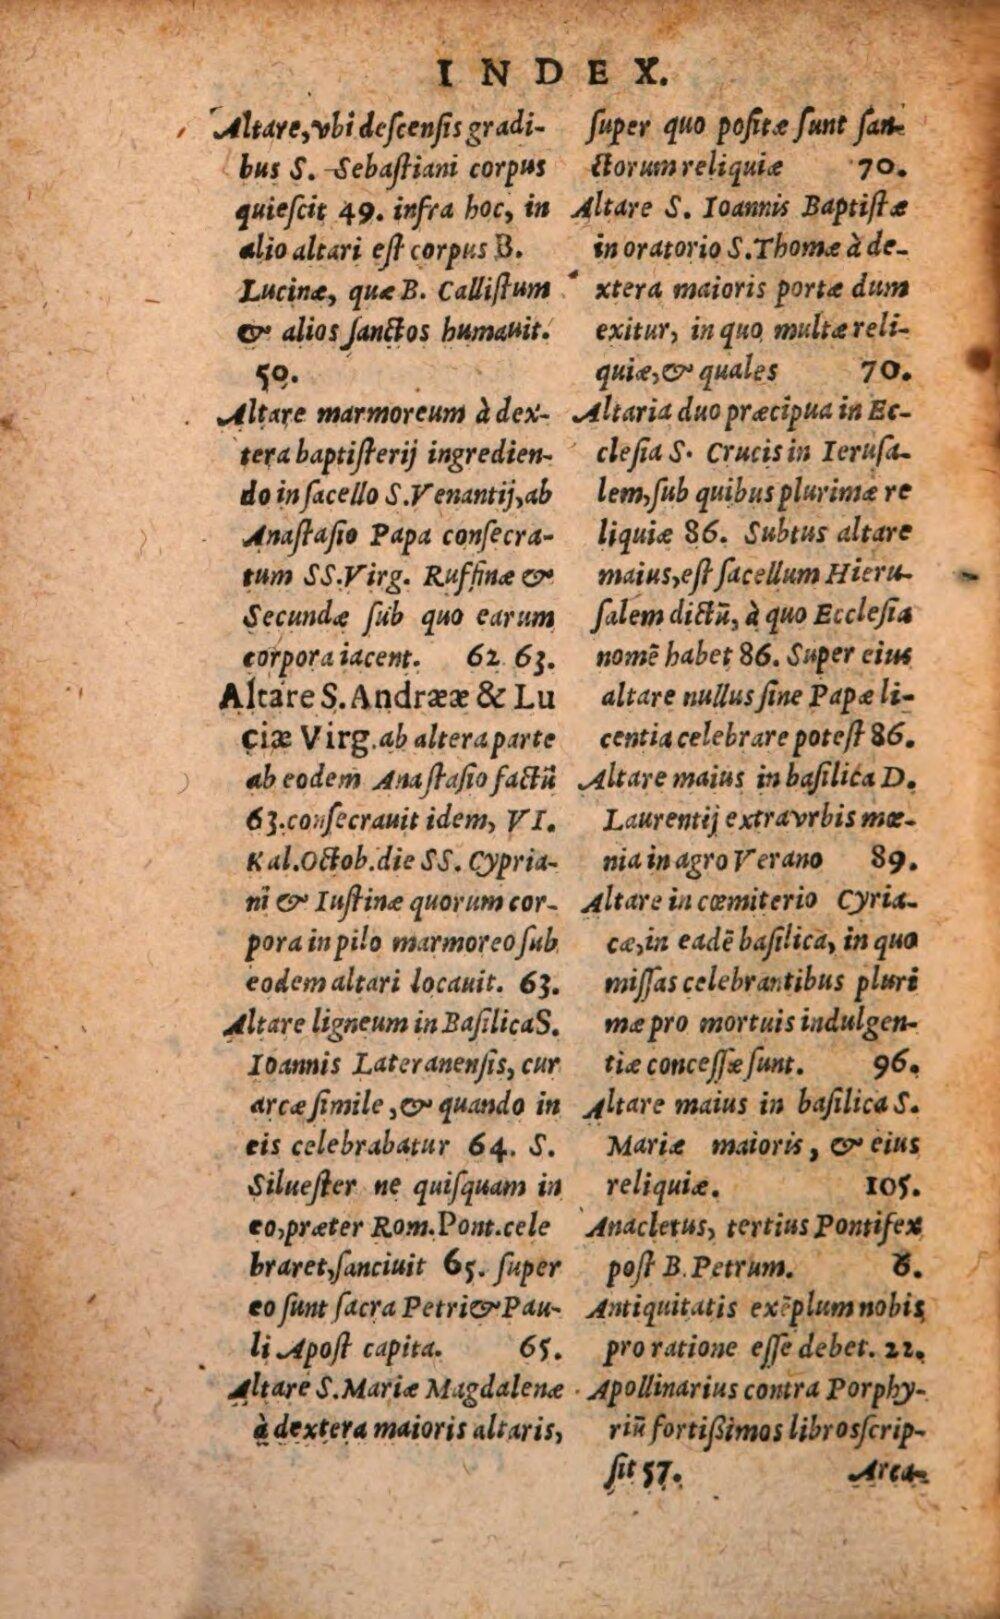 INDEX.
Altare, vbi descensis gradi-
bus S. Sebastiani corpus
quiescit 49. infra hoc, in
alio altari est corpus B.
Lucinæ, quæ B. Callistum
& alios sanctos humauit.
50.
Altare marmoreum à dex-
tera baptisterij ingredien-
do in sacello S. Venantij, ab
Anastasio Papa consecra-
tum SS. Virg. Ruffinæ &
Secundæ sub quo earum
corpora iacent. 62 63.
Altare S. Andrææ & Lu
ciæ Virg. ab altera parte
ab eodem Anastasio factũ
63. consecrauit idem, VI.
Kal. Octob. die SS. Cypria-
ni & Iustinæ quorum cor-
pora in pilo marmoreo sub
eodem altari locauit. 63.
Altare ligneum in Basilica S.
Ioannis Lateranensis, cur
arcæ simile, & quando in
eis celebrabatur 64. S.
Siluester ne quisquam in
eo, præter Rom. Pont. cele
braret, sanciuit 65. super
eo sunt sacra Petri & Pau-
li Apost capita. 65.
Altare S. Mariæ Magdalenæ
à dextera maioris altaris,
super quo positæ sunt san-
ctorum reliquiæ 70.
Altare S. Ioannis Baptistæ
in oratorio S. Thomæ à de-
xtera maioris portæ dum
exitur, in quo multæ reli-
quiæ, & quales 70.
Altaria duo præcipua in Ec-
clesia S. Crucis in Ierusa-
lem, sub quibus plurimæ re
liquiæ 86. Subtus altare
maius, est sacellum Hieru-
salem dictũ, à quo Ecclesia
nomẽ habet 86. Super eius
altare nullus sine Papæ li-
centia celebrare potest 86.
Altare maius in basilica D.
Laurentij extra vrbis mœ-
nia in agro Verano 89.
Altare in cœmiterio Cyria-
cæ, in eadẽ basilica, in quo
missas celebrantibus pluri
mæ pro mortuis indulgen-
tiæ concessæ sunt. 96.
Altare maius in basilica S.
Mariæ maioris, & eius
reliquiæ. 105.
Anacletus, tertius Pontifex
post B. Petrum. 6.
Antiquitatis exẽplum nobis
pro ratione esse debet. 22.
Apollinarius contra Porphy-
riũ fortißimos libros scrip-
sit 57. Arca-